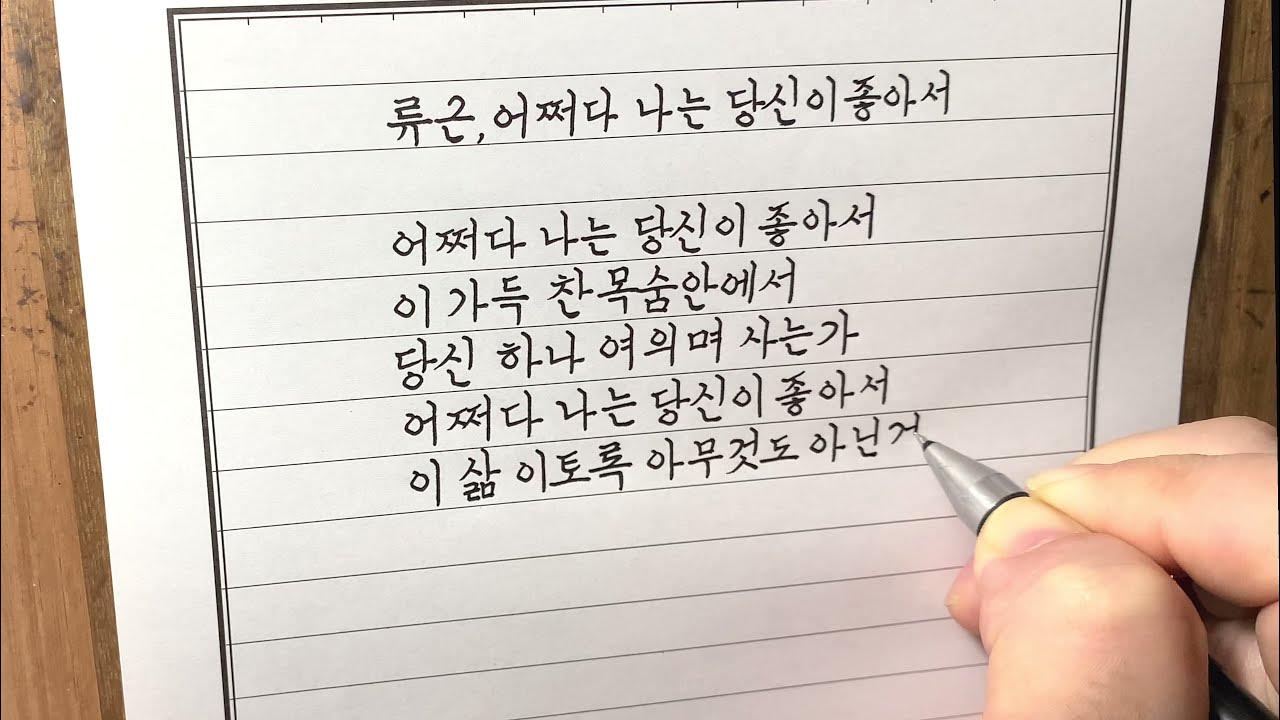 류근, 어쩌다 나는 당신이 좋아서
어쩌다 나는 당신이 좋아서
이 가득 찬 목숨안에서
당신 하나 여의며 사는가
어쩌다 나는 당신이 좋아서
이 삶 이토록 아무것도 아닌거